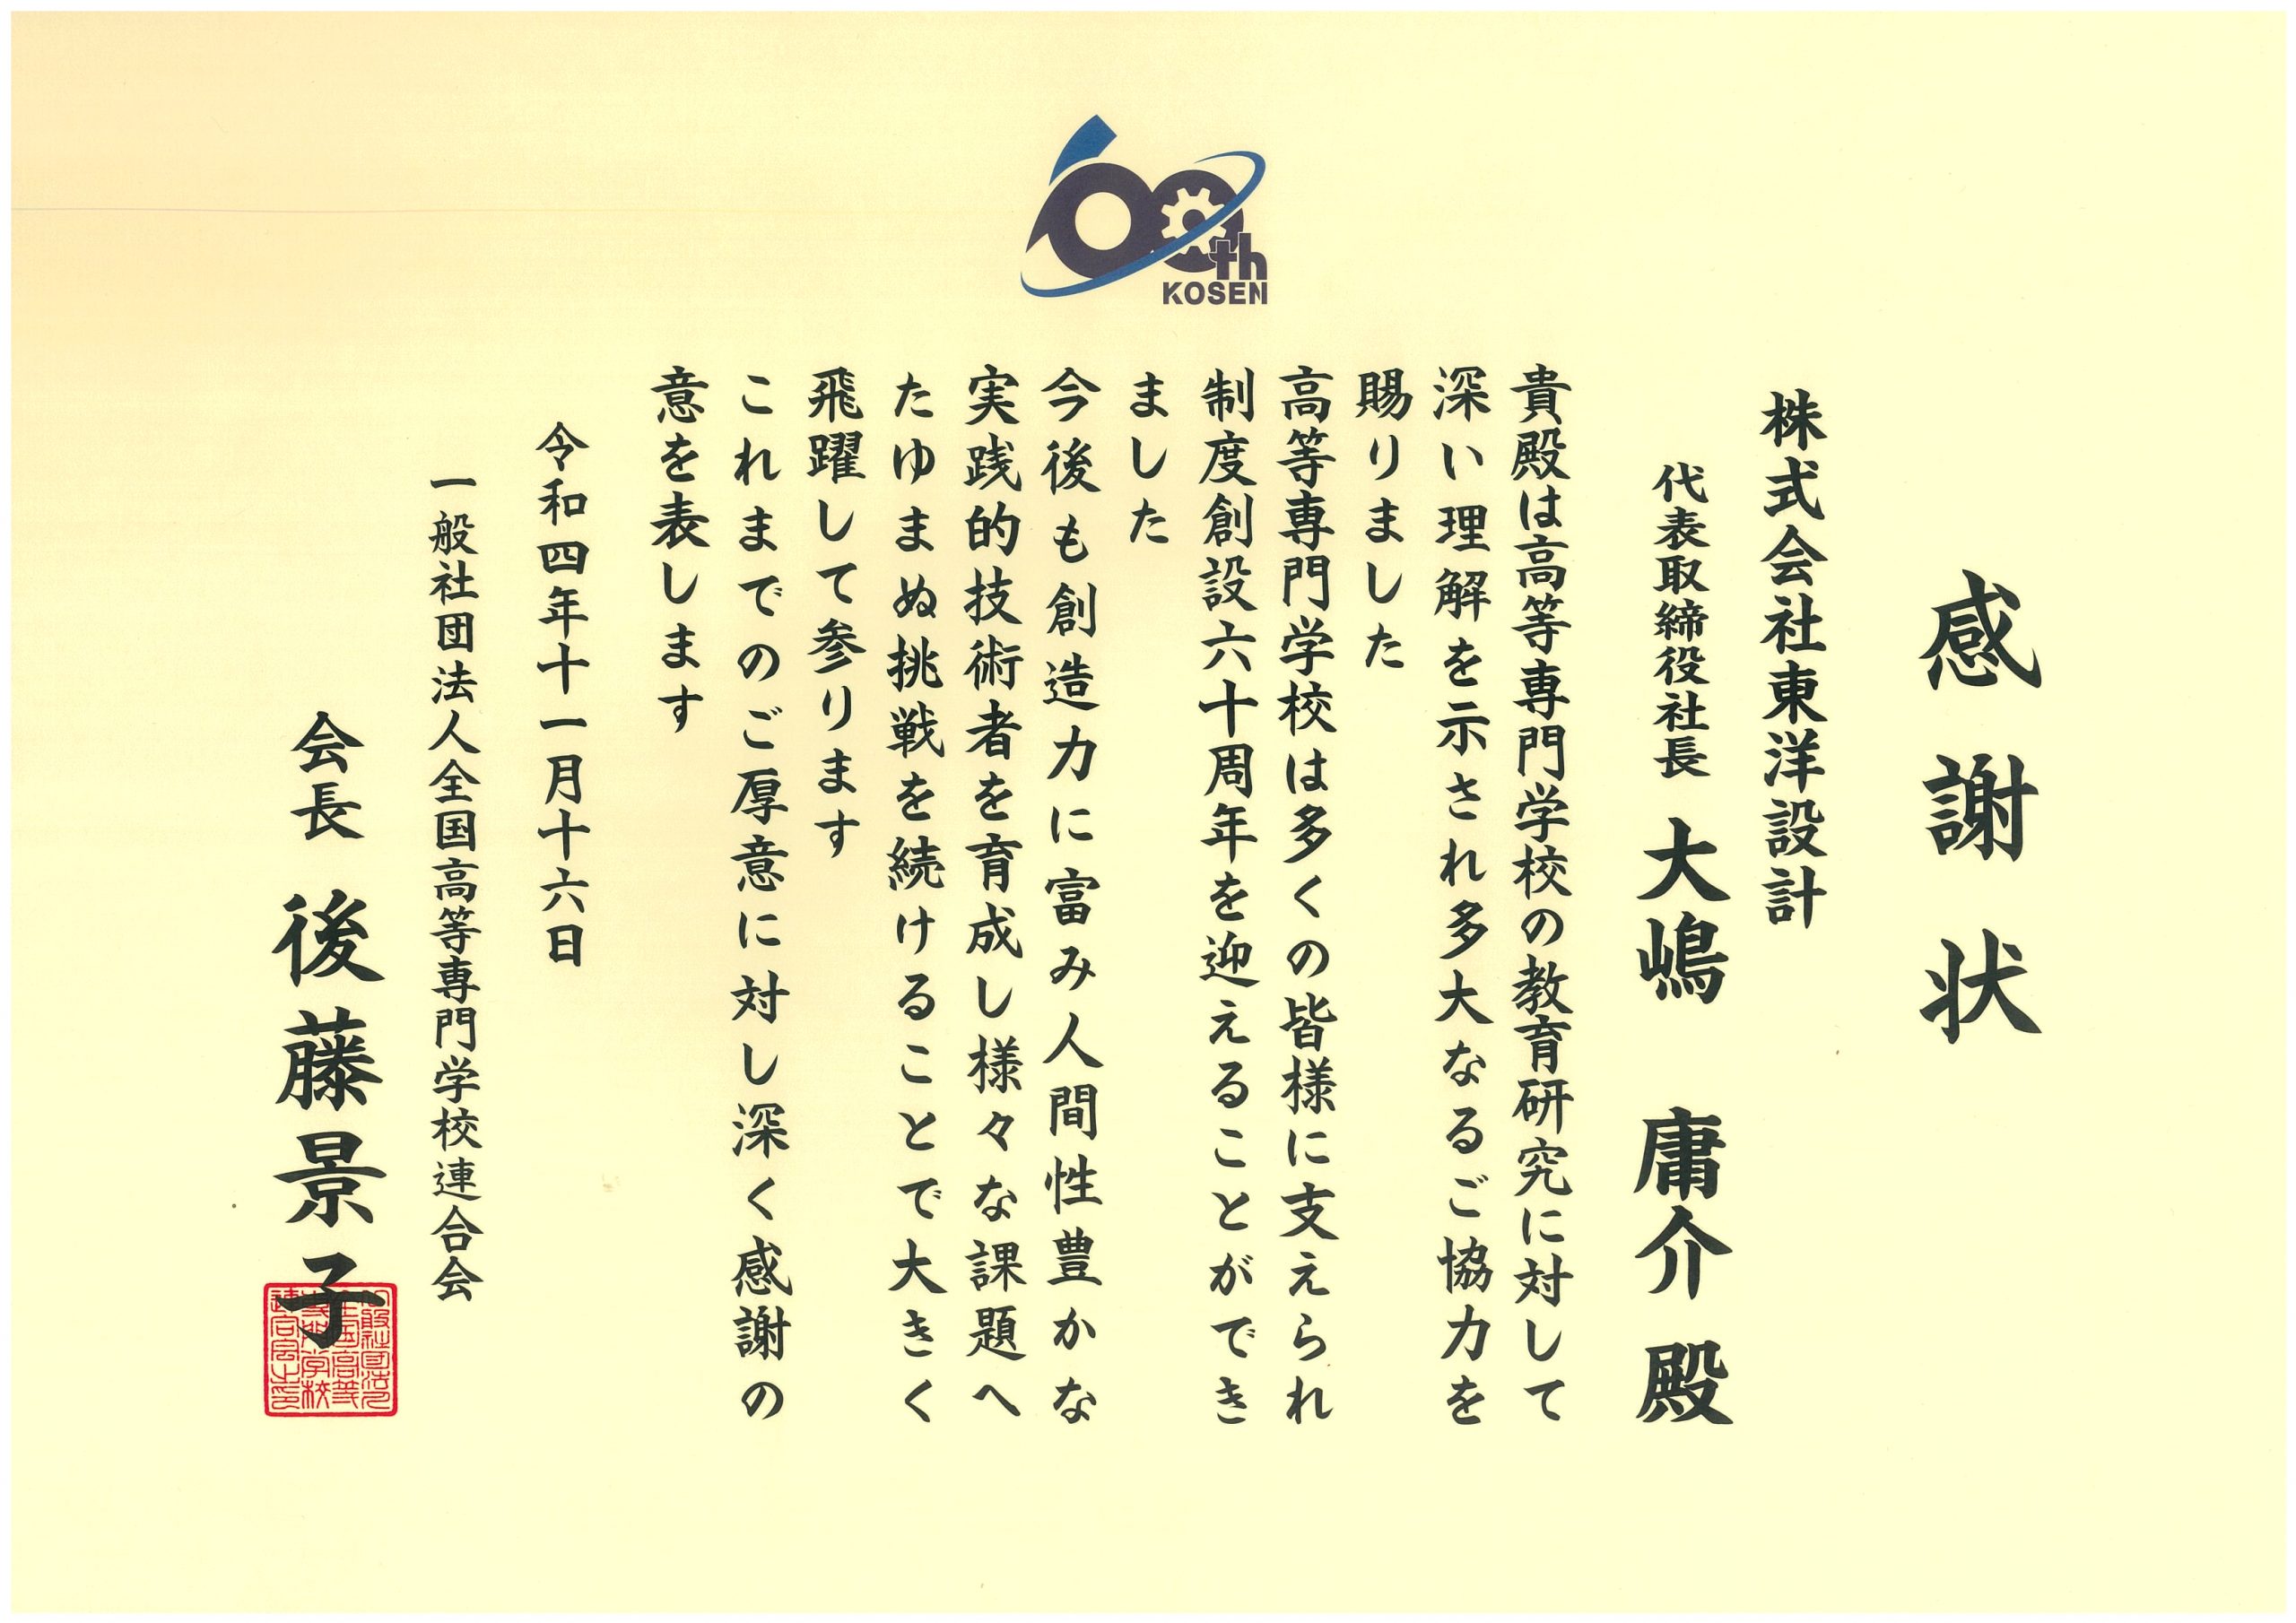 60th
KOSEN
感謝状
株式会社東洋設計
代表取締役社長 大嶋 庸介 殿
貴殿は高等専門学校の教育研究に対して
深い理解を示され多大なるご協力を
賜りました
高等専門学校は多くの皆様に支えられ
制度創設六十周年を迎えることができ
ました
今後も創造力に富み人間性豊かな
実践的技術者を育成し様々な課題へ
たゆまぬ挑戦を続けることで大きく
飛躍して参ります
これまでのご厚意に対し深く感謝の
意を表します
令和四年十一月十六日
一般社団法人全国高等専門学校連合会
会長 後藤景子